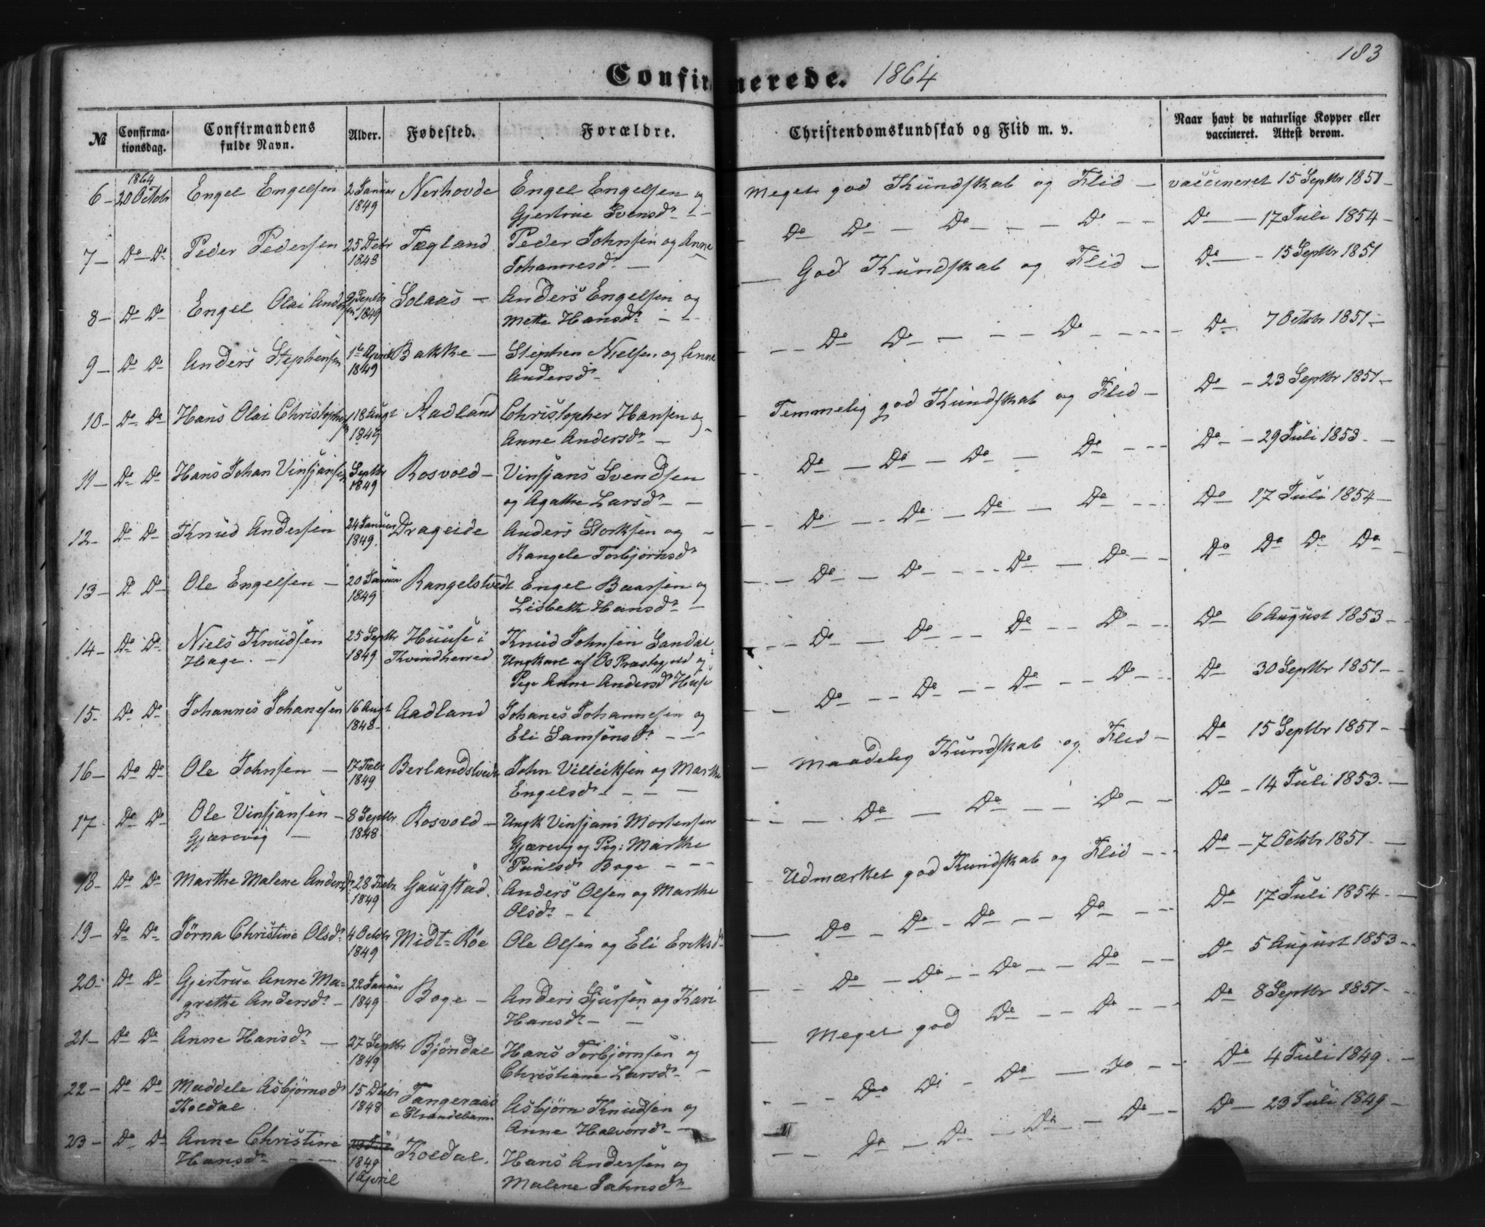 183
Confirmerede. 1864
№ Confirmationsdag. Confirmandens fulde Navn. Alder. Fødested. Forældre. Christendomskundskab og Flid m. v. Naar havt de naturlige Kopper eller vaccineret. Attest derom.
1864
6 - 20 Octobr Engel Engelsen 2 Januar 1849 Nerhovde Engel Engelsen og Gjertrue Svensdr - Meget god Kundskab og Flid - vaccineret 15 Septbr 1851 -
7 - Do Do Peder Pedersen 25 Decbr 1848 Tægland Peder Johnsen og Anne Johannesdr - Do Do - Do - - Do - - Do - 17 Juli 1854 -
8 - Do Do Engel Olai Andersen 2 Septbr 1849 Solaas - Anders Engelsen og Mette Hansdr - God Kundskab og Flid - Do - 15 Septbr 1851
9 - Do Do Anders Stephensen 1te April 1849 Bakke - Stephen Nielsen og Anne Andersdr - Do Do - - - Do - - - Do - 7 Octobr 1851 -
10 - Do Do Hans Olai Christophersen 18 Augt 1849 Aadland Christopher Hansen og Anne Andersdr - Temmelig god Kundskab og Flid - Do - 23 Septbr 1851 -
11 - Do Do Hans Johan Vinsjansen Septbr 1849 Rosvold - Vinsjans Svendsen og Agathe Larsdr - Do - Do - Do - Do - - Do - 29 Juli 1853 -
12 - Do Do Knud Andersen 24 Januar 1849 Drageide Anders Storksen og Rangele Torbjørnsdr - Do - - Do - Do - - Do - - Do - 17 Juli 1854 -
13 - Do Do Ole Engelsen - 20 Januar 1849 Rangelstvedt Engel Baarsen og Lisbeth Hansdr - Do - Do - - - Do - Do - - Do Do Do Do -
14 - Do Do Niels Knudsen Hage - 25 Septbr 1849 Huuse i Kvindherred Knud Johnsen Sandal Ungkarl af Os Præstegjeld og Pige Anne Andersdr Huse - Do - Do - - Do - - Do - - Do - 6 August 1853 -
15 - Do Do Johannes Johanesen 16 Augt 1848 - Aadland Johanes Johannesen og Eli Samsonsdr - - Do - - Do - - Do - - Do - Do - 30 Septbr 1851 -
16 - Do Do Ole Johnsen - 17 Febr 1849 Berlandstvedt John Villiksen og Marthe Engelsdr - - - Maadelig Kundskab og Flid - Do - 15 Septbr 1851 -
17 - Do Do Ole Vinsjansen - Gjærevig - 8 Septbr 1848 Rosvold - Ungk Vinsjans Mortensen Gjærevig og Pig: Marthe Paulsdr Boge - - - Do - Do - - Do - - Do - 14 Juli 1853 -
18 - Do Do Marthe Malene Andersdr 28 Febr 1849 Gaugstad Anders Olsen og Marthe Olsdr - - Udmærket god Kundskab og Flid - - Do - 7 Octobr 1851 -
19 - Do Do Jørna Christine Olsdr 4 Octobr 1849 Midt-Røe Ole Olsen og Eli Eriksdr - Do - Do - Do - - Do - - Do - 17 Juli 1854 -
20 - Do Do Gjertrue Anne Magrethe Andersdr - 22 Januar 1849 Boge - Anders Sjursen og Kari Hansdr - - - Do - Do - - Do - - Do - - Do - 5 August 1853 -
21 - Do Do Anne Hansdr - 27 Septbr 1849 Bjøndal Hans Torbjørnsen og Christiane Larsdr - - Meget god Do - - Do - - Do - 8 Septbr 1851 -
22 - Do Do Maddele Asbjørnsdr Koldal 15 Decbr 1848 Tangeraas i Strandebarm Asbjørn Knudsen og Anne Halvorsdr - - - - Do Do - Do - Do - - Do - 4 Juli 1849 -
23 - Do Do Anne Christine Hansdr - - 1849 1 April Koldal. Hans Andersen og Malene Johnsdr - - - Do - Do - - Do - - Do - - Do - 23 Juli 1849 -